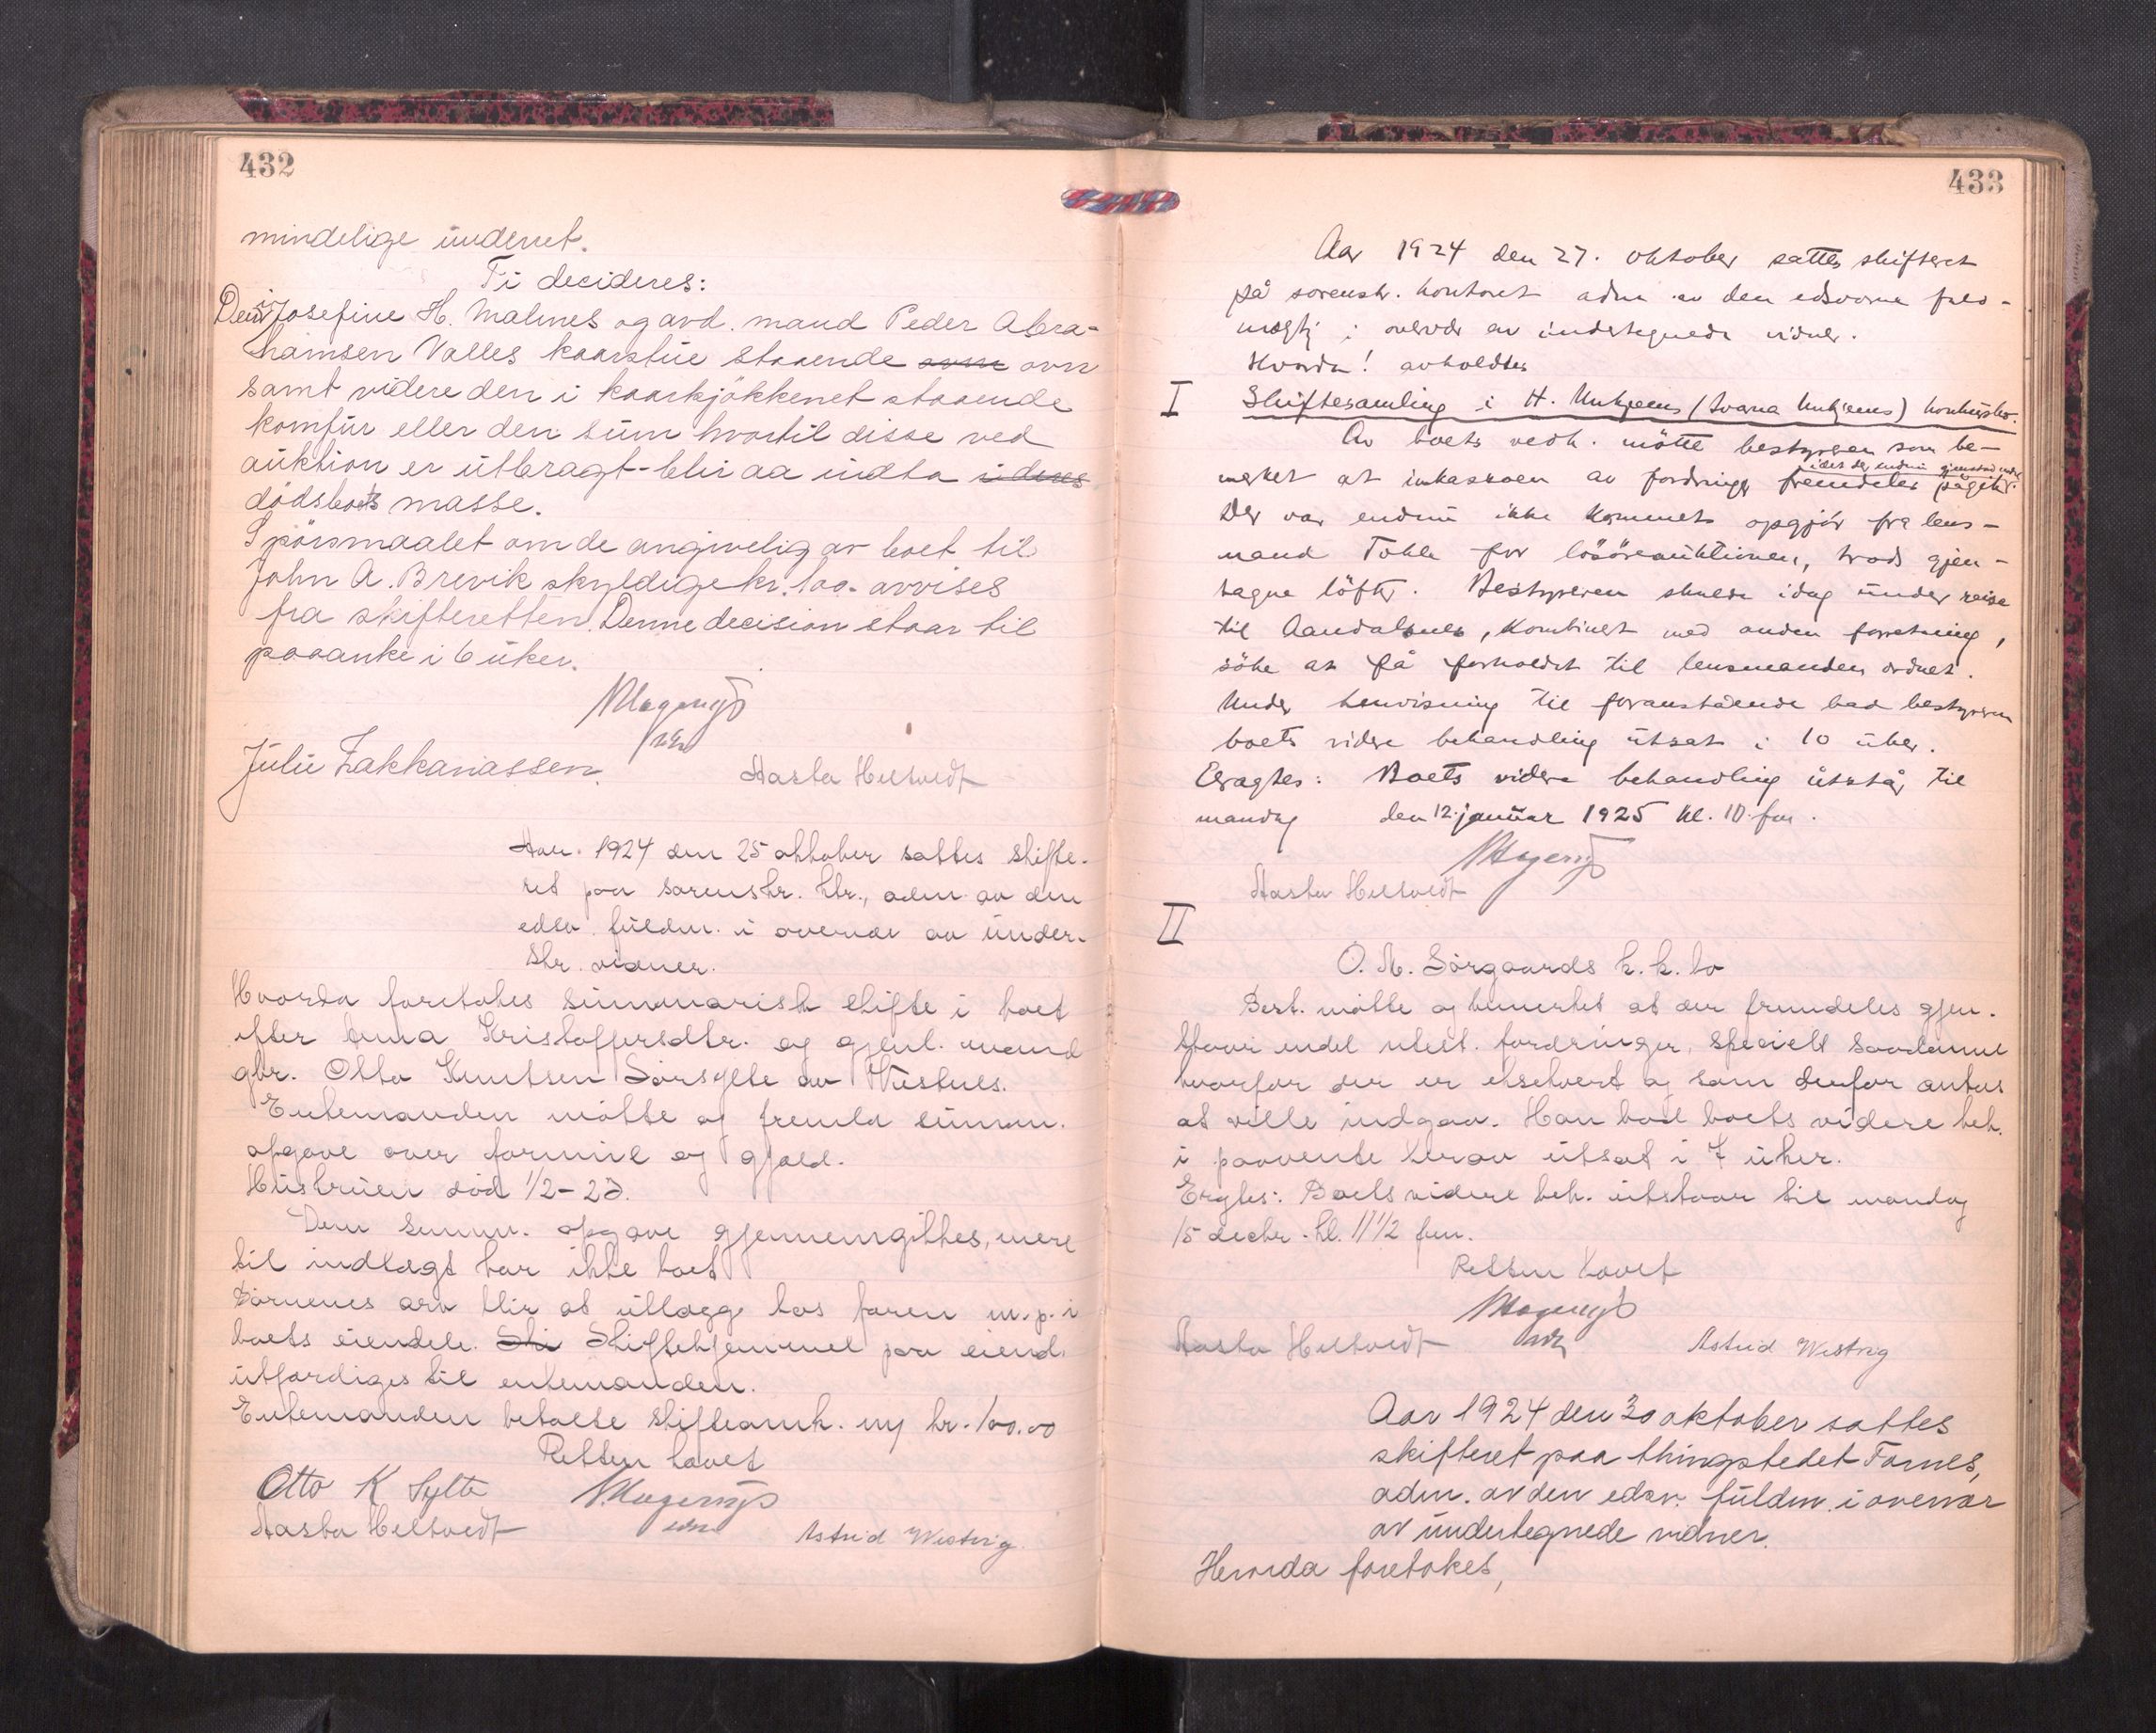 432
mindelige underret.
Ti decideres:
Den i Josefine H. Malmes og avd. mand Peder Abra-
hamsen Valles kaarstue staaende ovn
samt videre den i kaarkjökkenet staaende
komfur eller den sum hvortil disse ved
auktion er utbragt - blir aa indta
dödsboets masse.
Spörsmaalet om de angivelig av boet til
John A. Brevik skyldige kr. 100.- avvises
fra skifteretten. Denne decision staar til
paaanke i 6 uker.
Julie Zakkariassen. Aasta Heltvedt
Aar 1924 den 25 oktober sattes skifte-
ret paa sorenskr. ktr., adm. av den
edsv. fuldm. i overvær av under-
skr. vidner.
Hvorda foretokes summarisk skifte i boet
efter Anna Kristoffersdtr. og gjenl. mand
gbr. Otto Knutsen Sörsylte av Vestnes.
Enkemanden mötte og fremla summ.
opgave over formue og gjæld.
Hustruen död 1/2 - 23.
Den summ. opgave gjennemgikkes, mere
til indlægt har ikke boet
Barnenes arv blir at utlægge hos faren m. p. i
boets eiendele. Skiftehjemmel paa eiend.
utfærdiges til enkemanden.
Enkemanden betalte skifteomk. kr. 100.00
Retten hævet
Otto K Sylte
Aasta Heltvedt Astrid Westvig
433
Aar 1924 den 27. oktober sattes skifteret
på sorenskr. kontoret adm. av den edsvorne fuld-
mægtig i overvær av undertegnede vidner.
Hvorda! avholdtes
I Skiftesamling i H. Unhjems (Svana Unhjems) konkursbo.
Av boets vedk. mötte bestyreren som be-
idet der endnu gjenstod endel
merket at inkassoen av fordringer fremdeles pågikk.
Der var endnu ikke kommet opgjör fra lens-
mand Tokle for lösöreauktionen, trods gjen-
tagne löfter. Bestyreren skulde idag under reise
til Aandalsnes, kombinert med anden forretning,
söke at få forholdet til lensmanden ordnet.
Under henvisning til foranstående bad bestyreren
boets videre behandling utsat i 10 uker.
Eragtes: Boets videre behandling utstår til
mandag den 12. januar 1925 kl. 10 fm.
Aasta Heltvedt
II
O. A. Sörgaards k. k. bo
Best. mötte og bemerket at der fremdeles gjen-
staar endel utest. fordringer, specielt saadanne
hvorfor der er eksekvert og som derfor antas
at ville indgaa. Han bad boets videre beh.
i paavente herav utsat i 7 uker.
Ergtes: Boets videre beh. utstaar til mandag
15 decbr. kl. 11 1/2 fm.
Retten hævet
Aasta Heltvedt Astrid Westvig
Aar 1924 den 30 oktober sattes
skifteret paa thingstedet Tornes,
adm. av den edsv. fuldm. i overvær
av undertegnede vidner.
Hvorda foretokes,